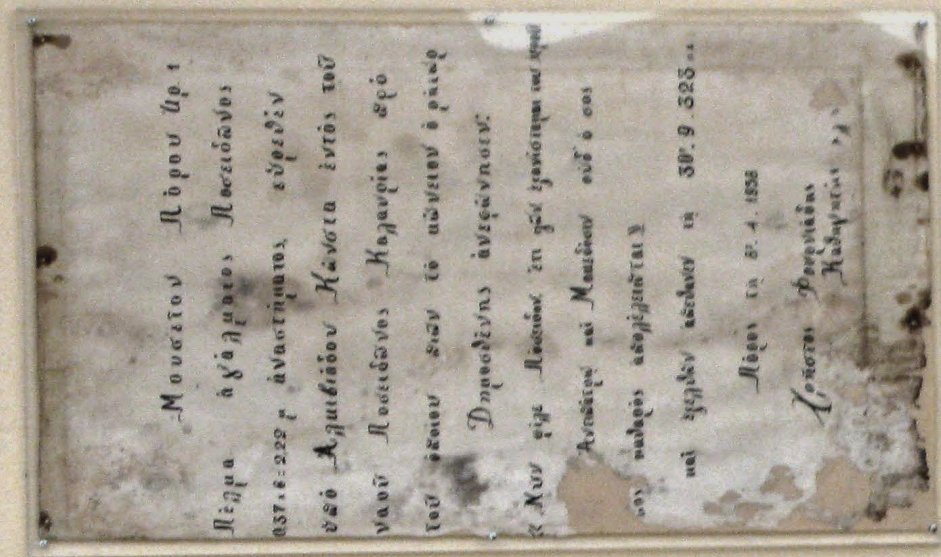 Μουσεῖον Πόρου Ἀρ. 1
Πέλμα ἀγάλματος Ποσειδῶνος
0,37 x 6 = 2,22 μ ἀναστήματος, εὑρεθὲν
ὑπὸ Ἀλκιβιάδου Κώνστα ἐντὸς τοῦ
ναοῦ Ποσειδῶνος Καλαυρίας πρὸ
τοῦ ὁποίου πιὼν τὸ κώνειον ὁ ρήτωρ
Δημοσθένης ἀνεφώνησεν:
« Νῦν φίλε Πόσειδον ἔτι ζῶν ἐξανίσταμαι τοῦ ἱεροῦ
Ἀντιπάτρῳ καὶ Μακεδόσιν οὐδ' ὁ σος
ναὸς καθαρὸς ἀπολέλειπται »
καὶ ἐξελθὼν ἀπέθανεν τῇ 30'. 9. 323
Πόρος τῇ 8'. 4. 1938
Χρῆστος Φουρνιάδης
Καθηγητὴς